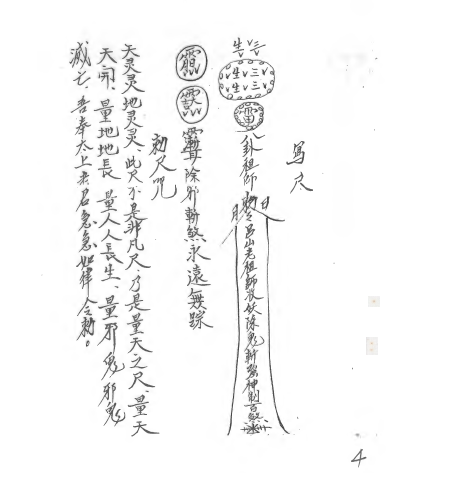 寫尺
八卦祖師勅令呂山老祖師收妖除鬼斬惡神制百煞
除邪斬煞永遠無踪
勅尺咒
天灵灵地灵灵、此尺不是非凡尺、乃是量天之尺、量天
天開、量地地長、量人人長生、量邪鬼邪鬼
滅亡、吾奉太上老君急急如律令勅。
4